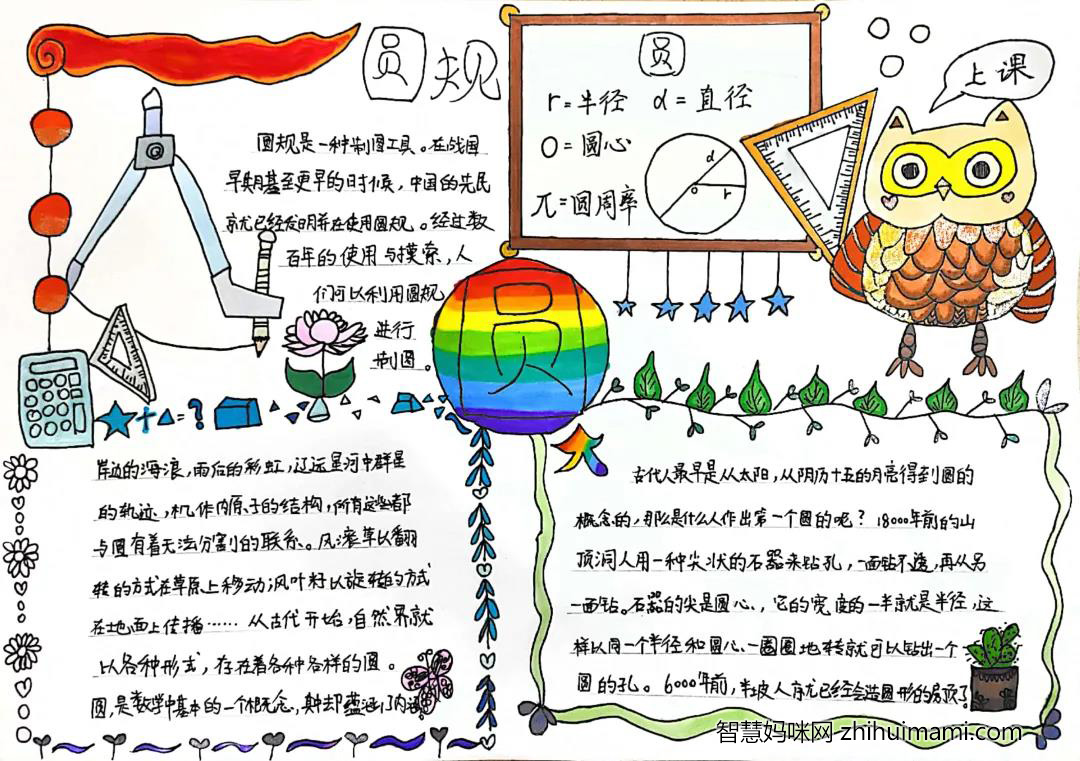 圆规
圆规是一种制图工具。在战国
早期甚至更早的时候，中国的先民
就已经发明并在使用圆规。经过数
百年的使用与摸索，人
们可以利用圆规
进行
制图。
圆
r=半径 d=直径
O=圆心
π=圆周率
d
o
r
上课
圆
岸边的海浪，雨后的彩虹，辽远星河中群星
的轨迹，机作内原子的结构，所有这些都
与圆有着无法分割的联系。风滚草以翻
转的方式在草原上移动，风叶籽以旋转的方式
在地面上传播……从古代开始，自然界就
以各种形式，存在着各种各样的圆。
圆，是数学中基本的一个概念，却蕴涵了内涵
古代人最早是从太阳，从阴历十五的月亮得到圆的
概念的，那么是什么人作出第一个圆的呢？18000年前的山
顶洞人用一种尖状的石器来钻孔，一面钻不透，再从另
一面钻。石器的尖是圆心，它的宽度的一半就是半径，这
样以同一个半径和圆心一圈圈地转就可以钻出一个
圆的孔。6000年前，半坡人就已经会造圆形的房顶了
智慧妈咪网 zhihuimami.com